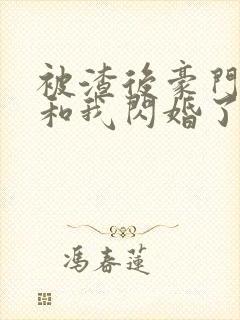 被渣後豪門
和我閃婚了
馮春蓮